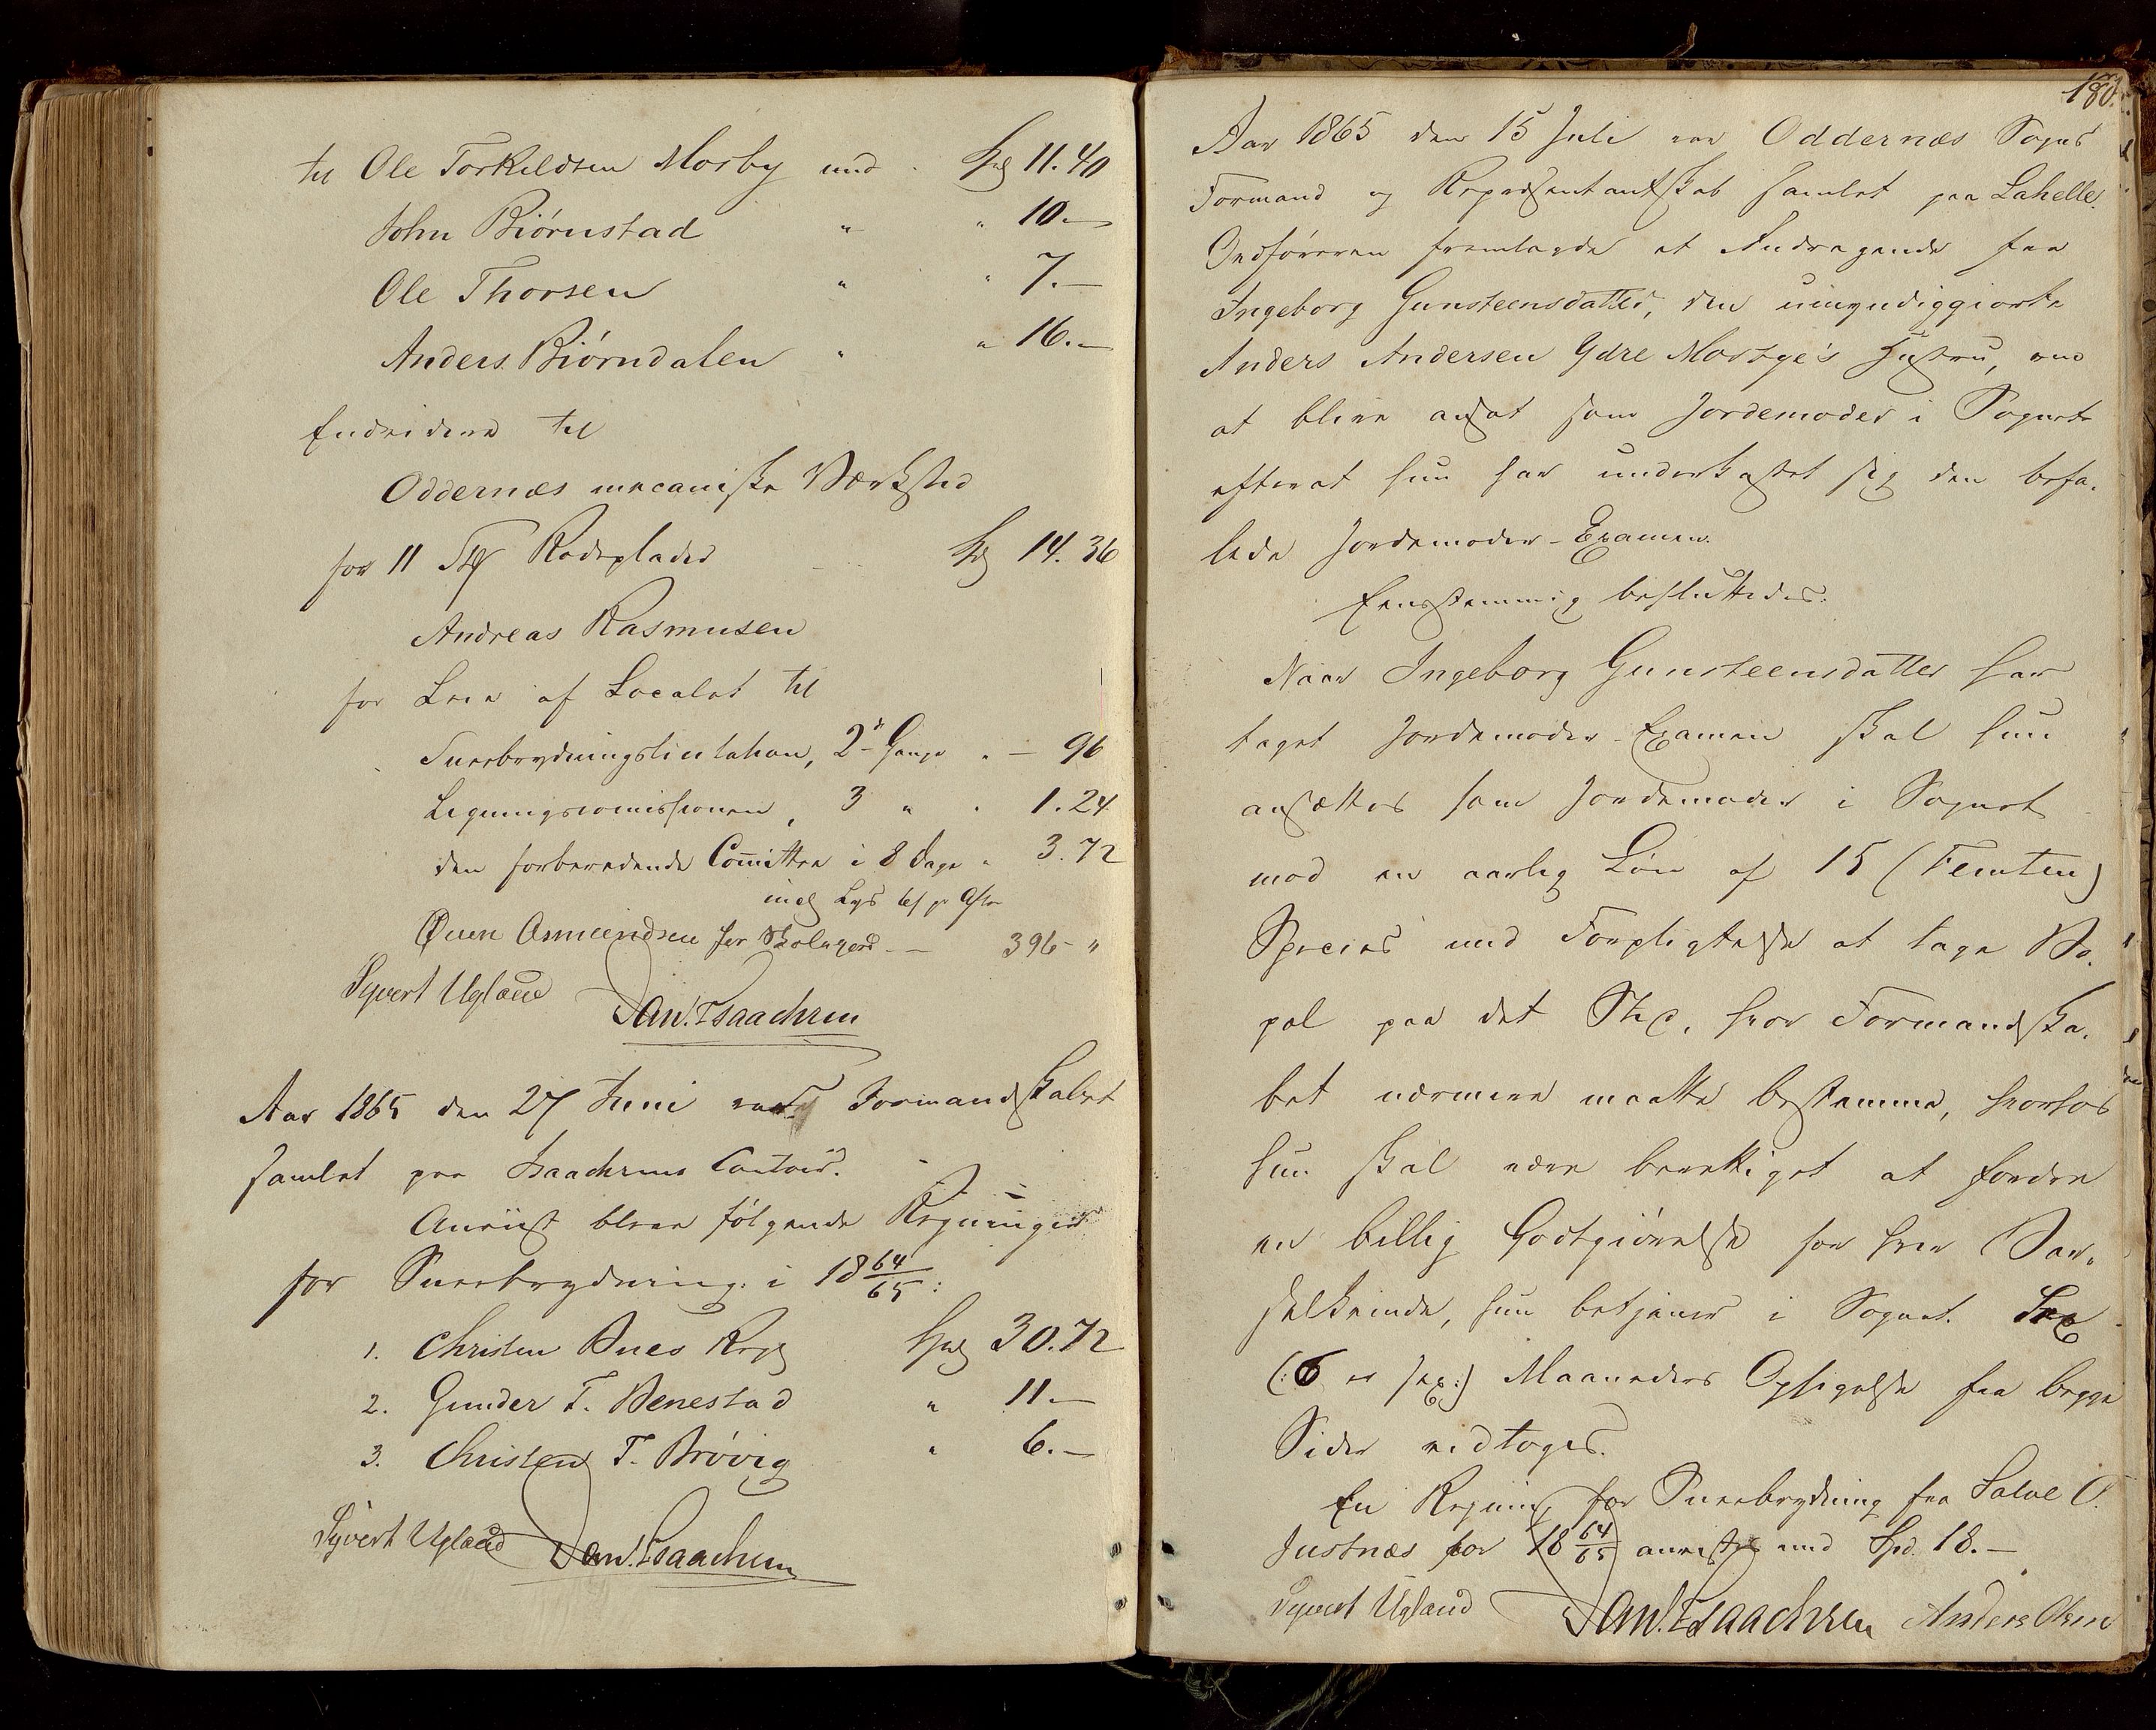 til Ole Torkildsen Mosby med Spd 11.40
John Biørnstad " " 10.—
Ole Thorsen " " 7.—
Anders Biørndalen " " 16.—
Endvidere til
Oddernæs mecaniske Værksted
for 11 St Rodeplader Spd 14.36
Andreas Rasmusen
for Leie af Localet til
Sneebrydningslicitation, 2de Gange " — 96
Ligningscomissionen, 3 " " 1.24
den forberedende Comittee i 8 Dage " 3.72
Lys
Osmundsen for — 396 "
Syvert Ugland Dan. Isaachsen
Aar 1865 den 27 Juni var Formandskabet
samlet paa Isaachsens Contoir.
Anviist bleve følgende Regninger
for Sneebrydning i 18 64/65:
1. Christen Bues Regg Spd 30.72
2. Gunder T. Benestad " 11.—
3. Christen T. Brøvig " 6.—
Syvert Ugland Dan. Isaachsen
180.
Aar 1865 den 15 Juli var Oddernæs Sogns
Formand og Repræsentantskab samlet paa Lahelle.
Ordføreren fremlagde et Andragende fra
Ingeborg Gunsteensdatter, den umyndiggiorte
Anders Andersen Ydre Mosbye's Hustru, om
at blive ansat som Jordemoder i Sognet
efterat hun har underkastet sig den befa-
lede Jordemoder-Examen.
Eensstemmig besluttedes:
Naar Ingeborg Gunsteensdatter har
taget Jordemoder-Examen skal hun
ansættes som Jordemoder i Sognet
mod en aarlig Løn af 15 (Femten)
Species med Forpligtelse at tage Bo-
pæl paa det Sted, hvor Formandska-
bet nærmere maatte bestemme, hvorhos
hun skal være berettiget at fordre
en billig Godtgiørelse for hver Bar-
selkvinde, hun betjener i Sognet. Sex
(:6 er sex:) Maaneders Opsigelse fra begge
Sider vedtoges.
En Regning for Sneebrydning fra Salve O.
Justnæs for 18 64/65 anvistes med Spd. 18.—
Syvert Ugland Dan. Isaachsen Anders Olsen